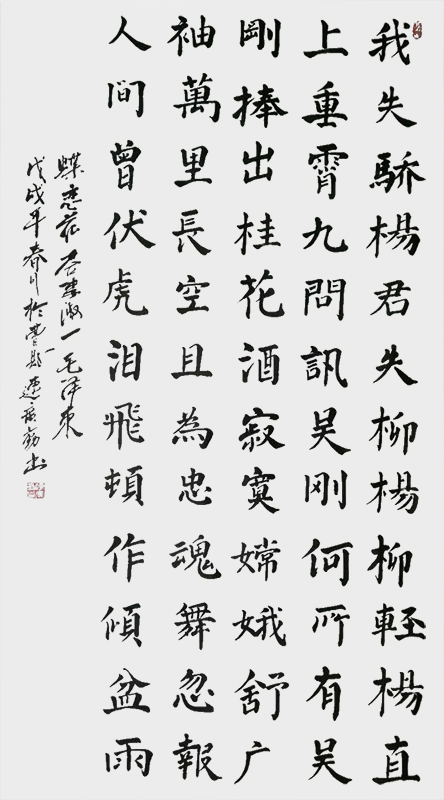 我失驕楊君失柳楊柳輕楊直
上重霄九問訊吴刚何所有吴
剛捧出桂花酒寂寞嫦娥舒广
袖萬里長空且為忠魂舞忽報
人間曾伏虎泪飛頓作傾盆雨
蝶恋花答李淑一毛泽东
戊戌年春月於